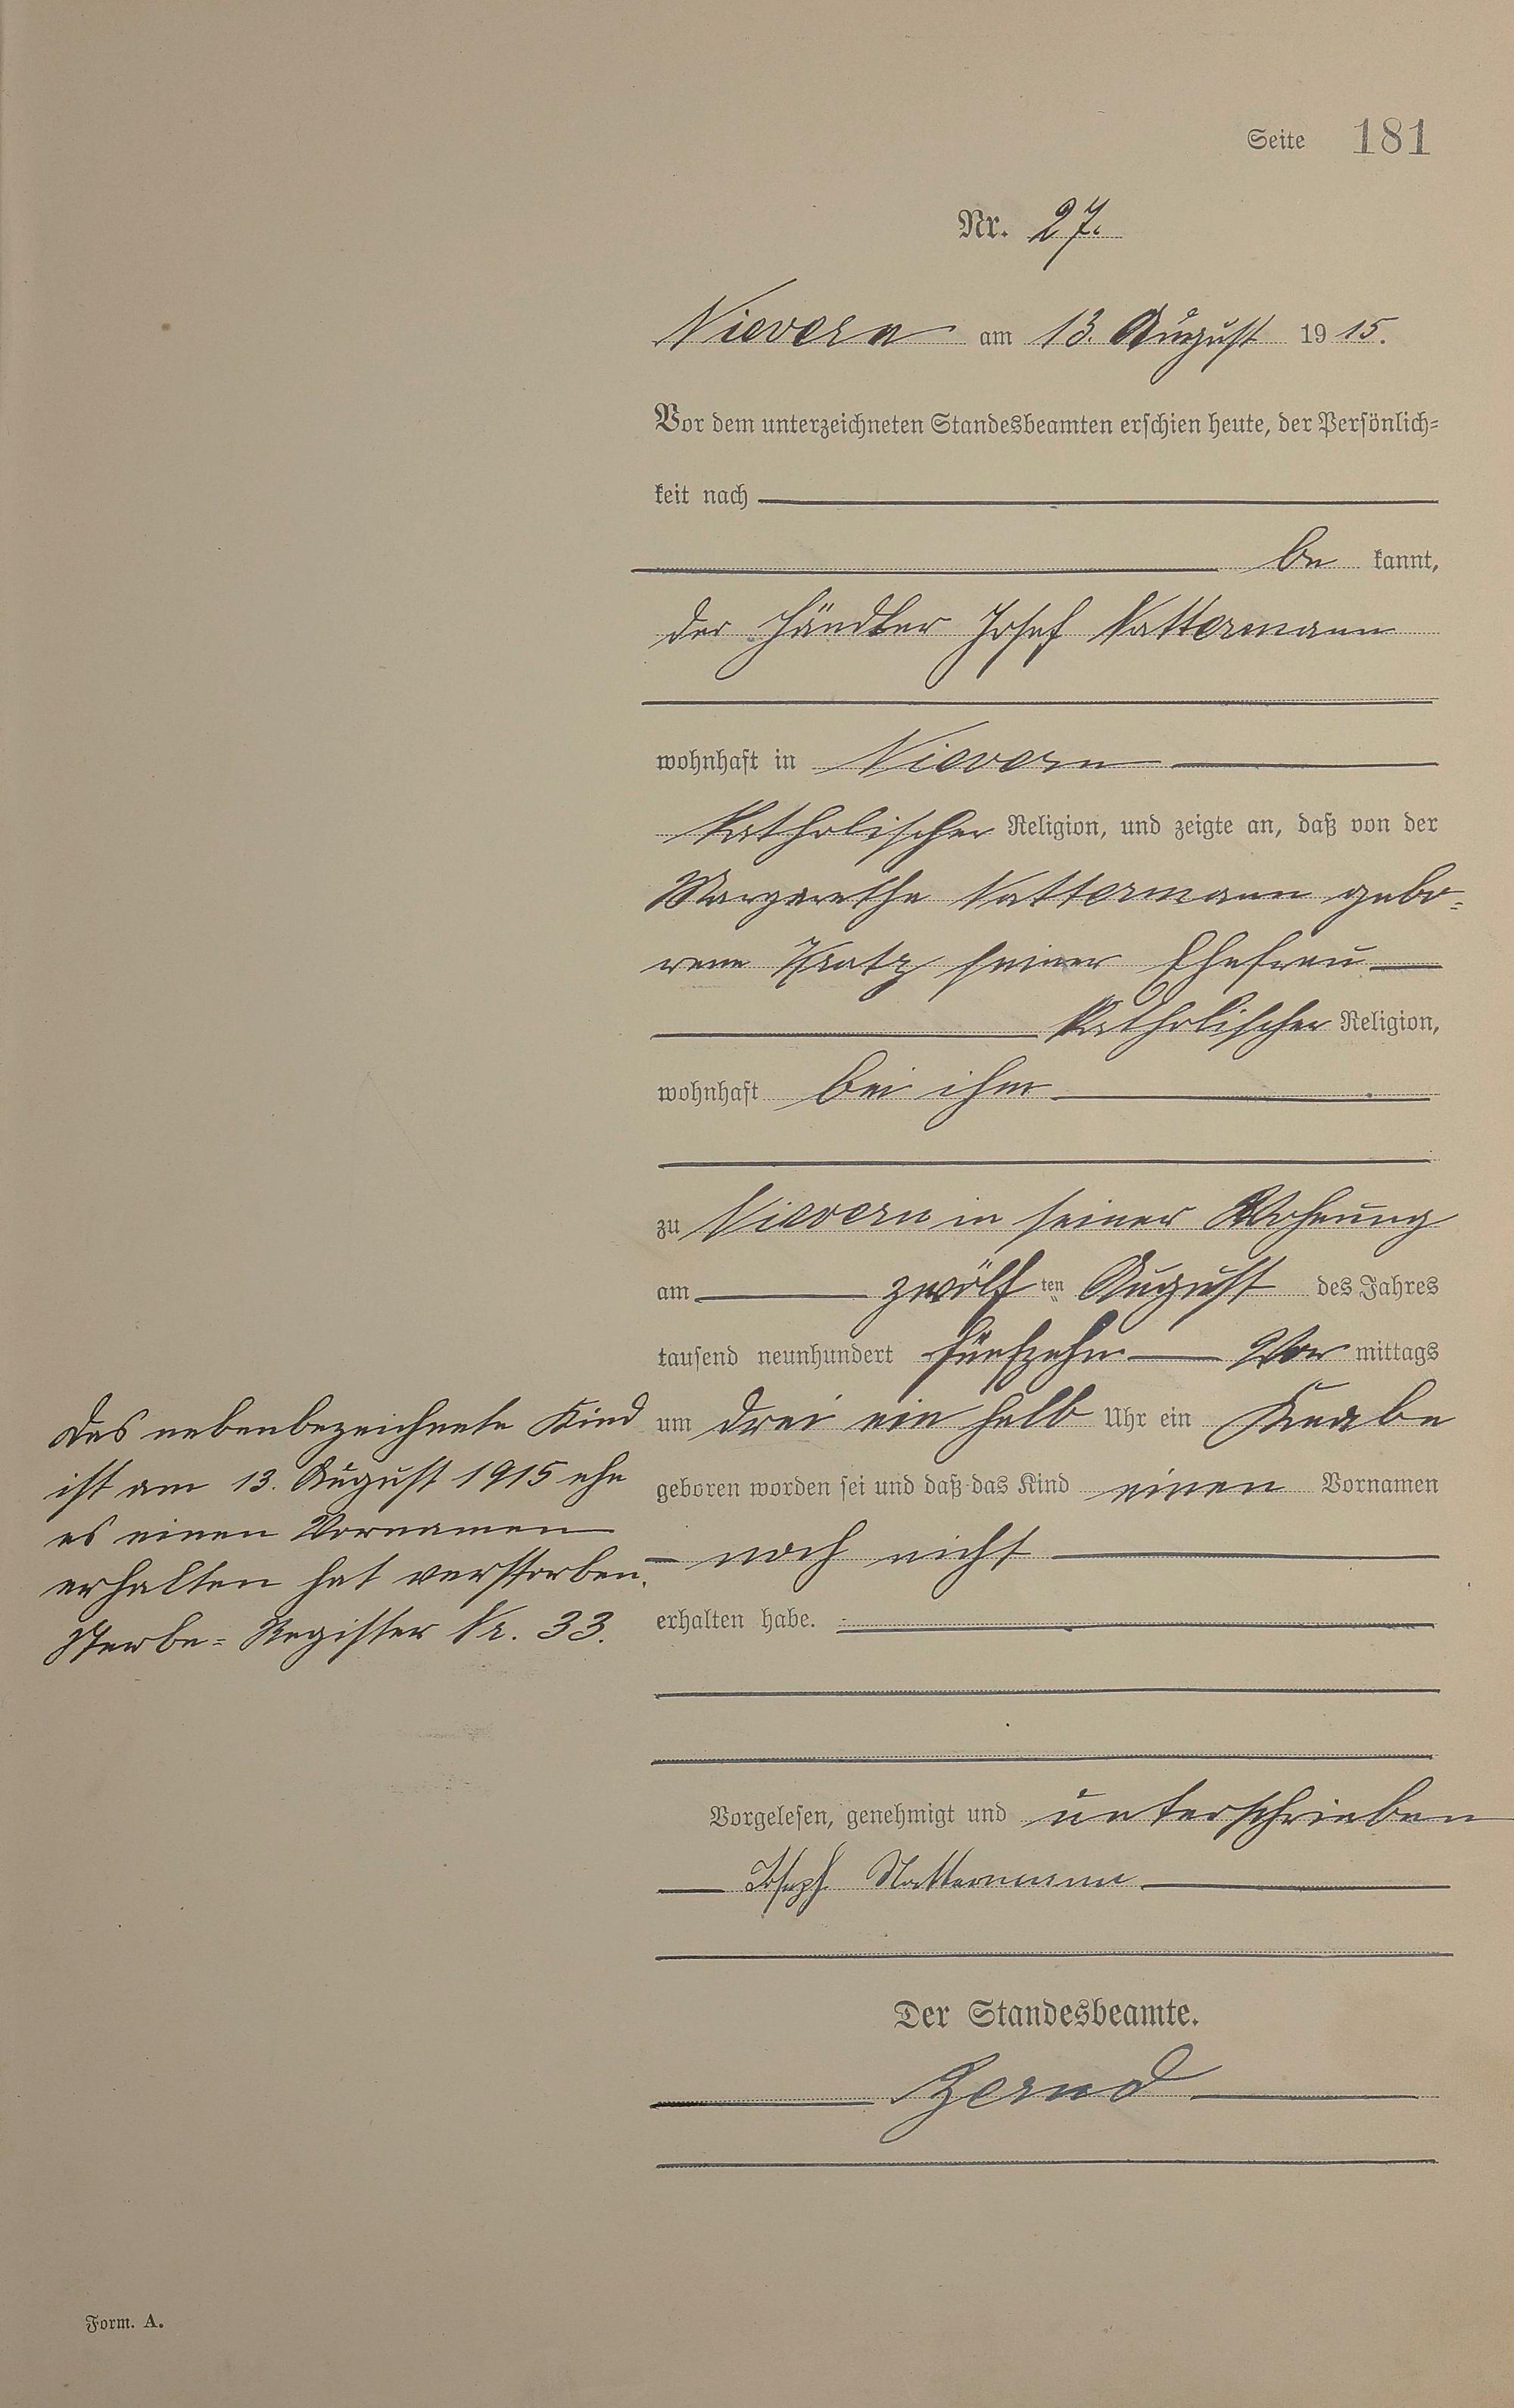 Seite 181
Nr. 27.
Nievern am 13. August 19 15.
Vor dem unterzeichneten Standesbeamten erschien heute, der Persönlich-
keit nach
be kannt,
der Händler Josef Nattermann
wohnhaft in Nievern
katholischer Religion, und zeigte an, daß von der
Margarethe Nattermann gebo-
rene seiner Ehefrau
katholischer Religion,
wohnhaft bei ihm
zu Nievern in seiner Wohnung
am zwölf ten August des Jahres
tausend neunhundert fünfzehn Vor mittags
um drei ein halb Uhr ein Knabe
geboren worden sei und daß das Kind einen Vornamen
noch nicht
erhalten habe.
Das nebenbezeichnete Kind
ist am 13. August 1915 ehe
es einen Vornamen
erhalten hat verstorben.
Sterbe-Register Nr. 33.
Vorgelesen, genehmigt und unterschrieben
Joseph Nattermann
Der Standesbeamte.
Form. A.